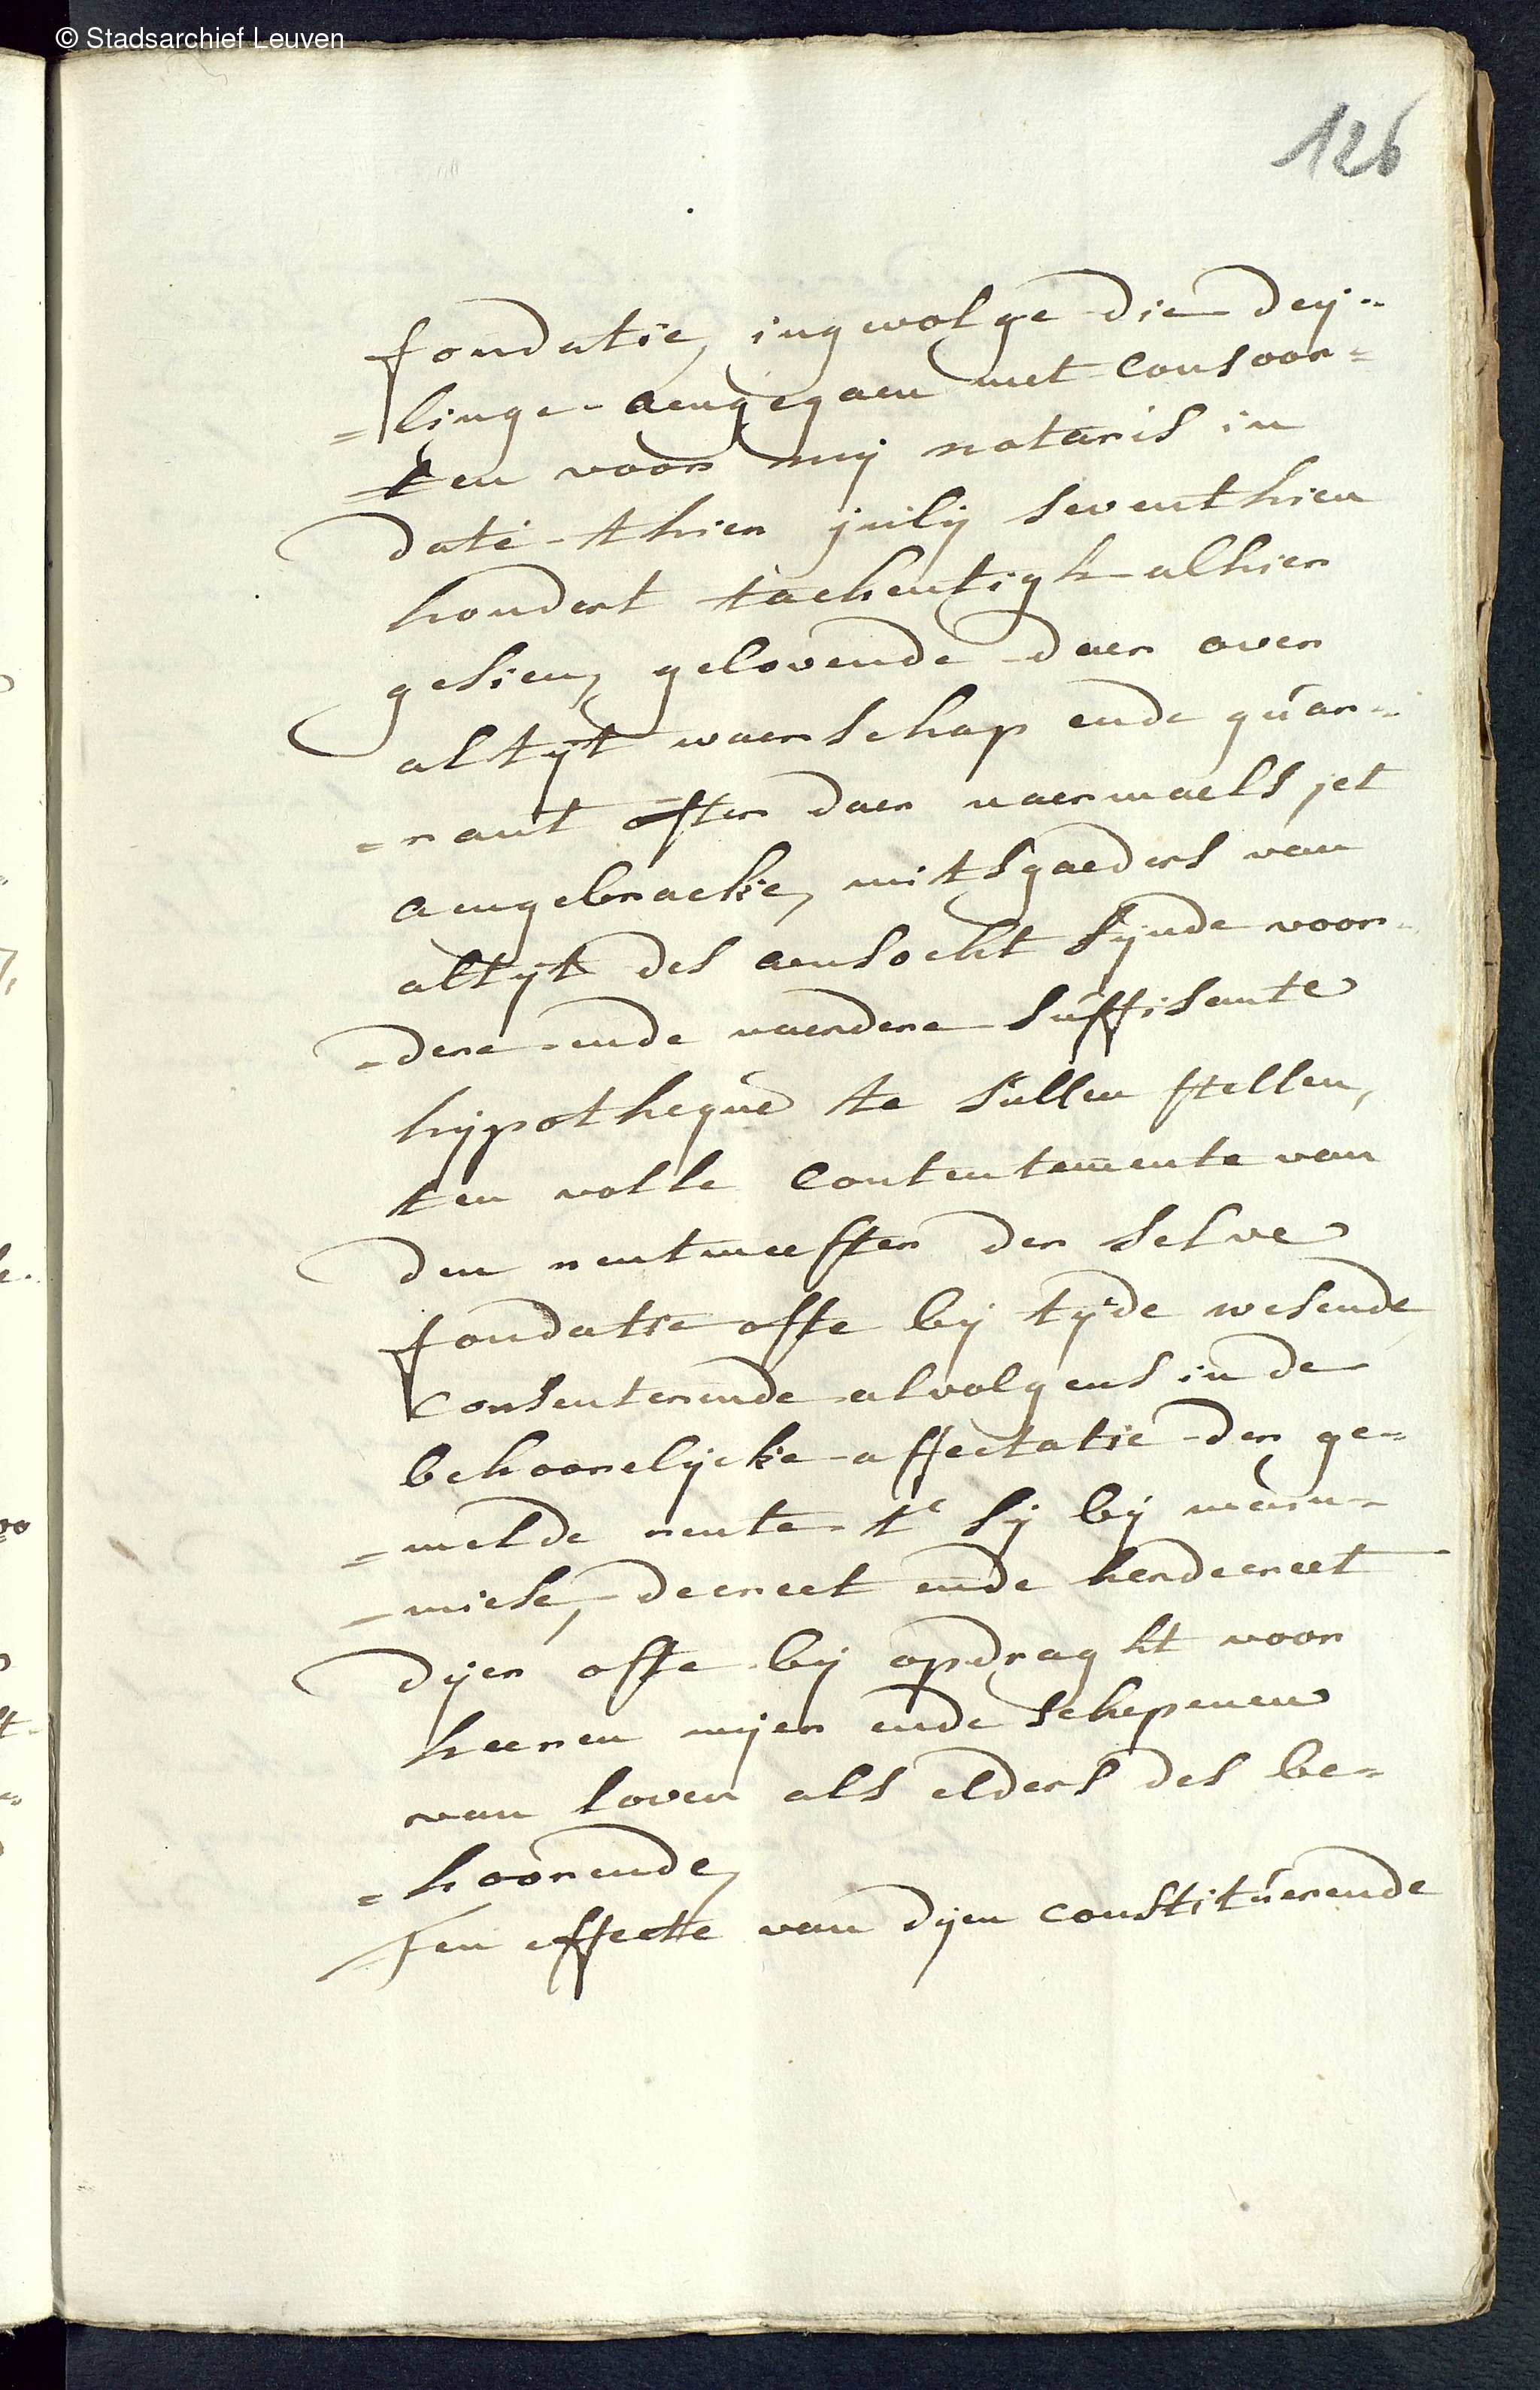 © Stadsarchief Leuven
126
fondatie, ingevolge die dey-
=linge aengegaen met consoor=
ten voor mij notaris in
daté thien julij seventhien
hondert tachentigh alhier
gesien, gelovende daer over
altijt waerschap ende guar-
=rant ofter daer naermaels jet
aengebracke, mitsgaeders van
altijt des aensocht sijnde voor-
-dere ende naerdere suffisante
hijpotheque te sullen stellen,
ten volle contentemente van
den rentmeester der selve
fondatie ofte bij tijde wesende
consenterende alvolgens in de
behoorelijcke affectatie der ge=
=melde rente t' sij bij manu-
-miese, decreet ende herdecreet
dijer ofte bij opdraght voor
heeren mijer ende schepenen
van loven als elders des be=
=hoorende,
Ten effecte van dijen constituerende